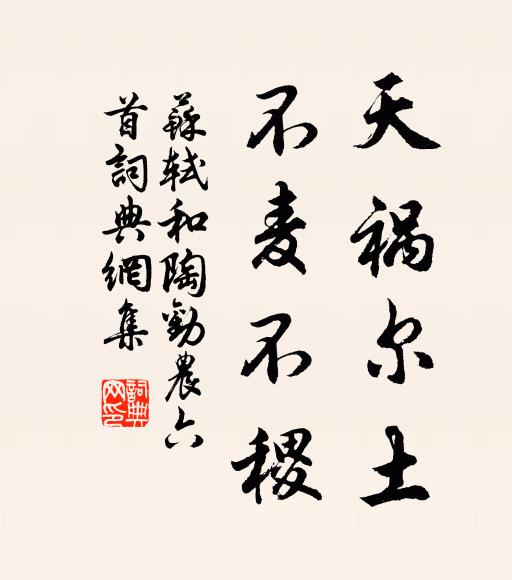 天祸尔土
不麦不稷
蘇軾和陶勸農六
首詞典網集
詞典
网印